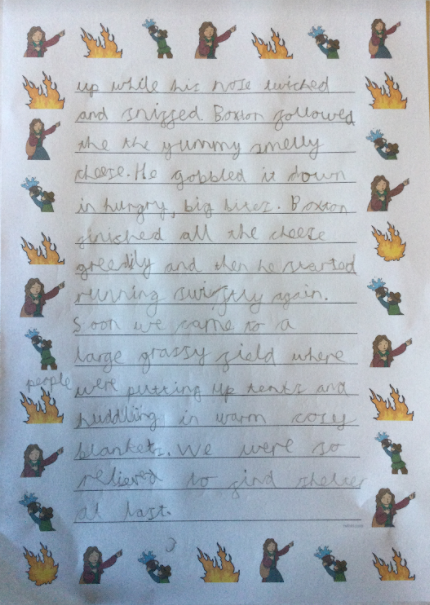 up while his nose twiched
and sniffed. Boxton followed
the the yummy smelly
cheese. He gobbled it down
in hungry, big bites. Boxton
finished all the cheese
greedily and then he started
running swiftly again.
Soon we came to a
large grassy field where
people were putting up tents and
huddling in warm cosy
blankets. We were so
relieved to find shelter
at last.